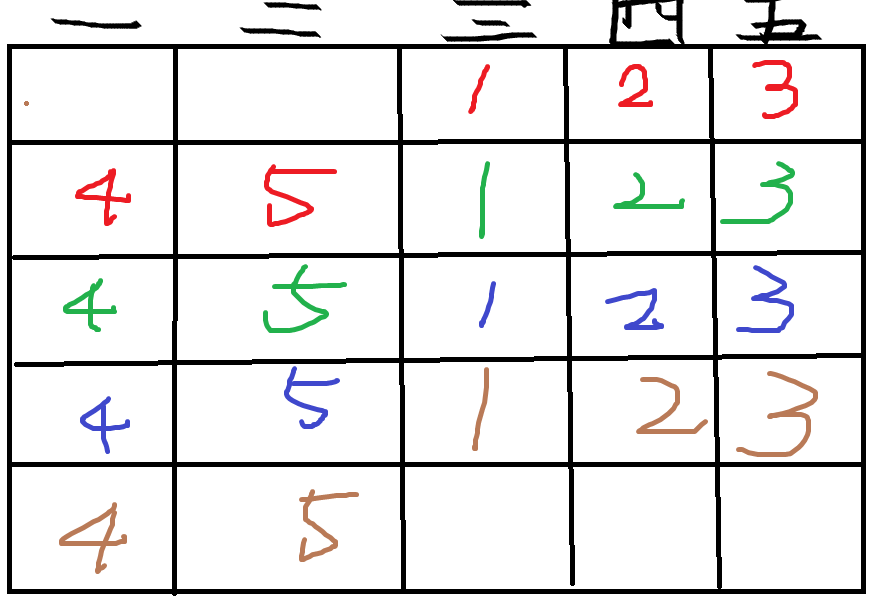 一 二 三 四 五
1 2 3
4 5 1 2 3
4 5 1 2 3
4 5 1 2 3
4 5